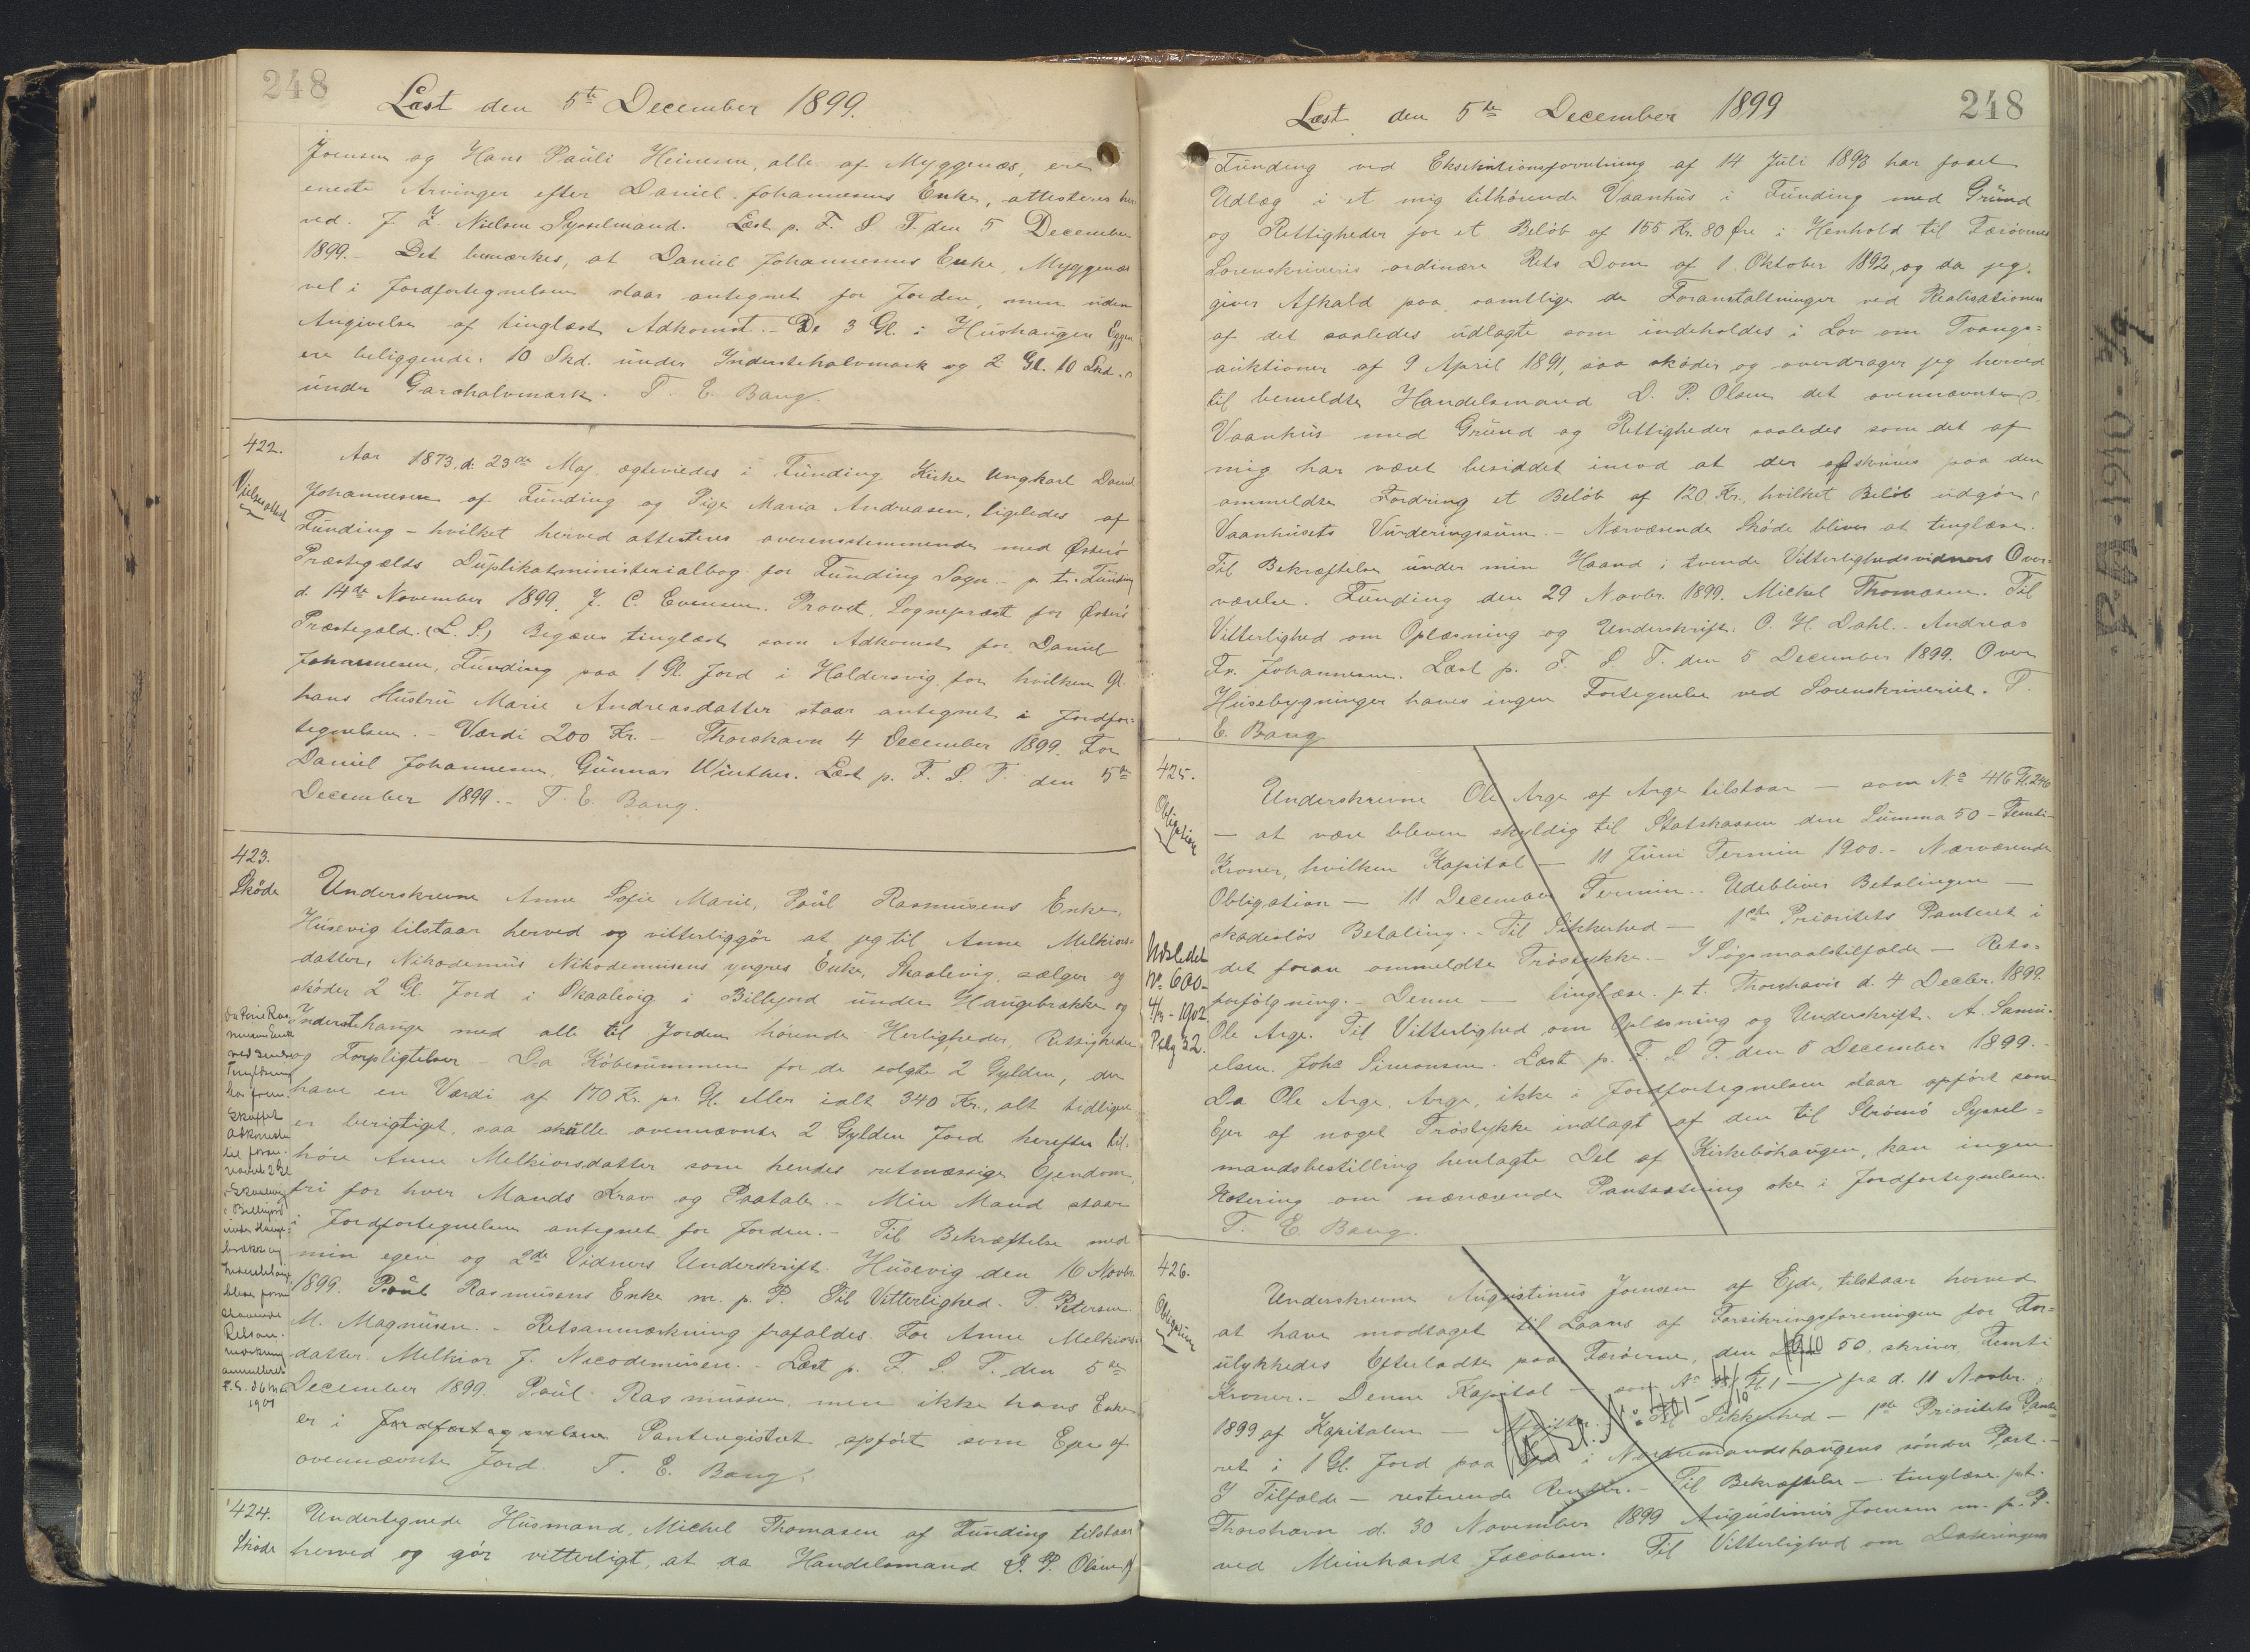 248
Læst den 5te December 1899.
Joensen og Hans Pauli Heinesen, alle af Myggenæs, ere
eneste Arvinger efter Daniel Johannesens Enke, attesteres her
ved. J. Z. Nielsen Sysselmand. Læst p. F. S. T. den 5 December
1899. - Det bemærkes, at Daniel Johannesens Enke, Myggenæs
vel i Jordfortegnelsen staar antegnet for Jorden, men uden
Angivelse af tinglæst Adkomst. - De 3 Gl. i Hushaugen
ere beliggende: 10 Skd. under Inderstehalvmark og 2 Gl. 10 Skd.
under Garahalvmark. T. E. Bang
422.
Vielsesattest
Aar 1873, d: 23de Maj, ægteviedes i Funding Kirke Ungkarl Daniel
Johannesen af Funding og Pige Maria Andreasen, ligeledes af
Funding - hvilket herved attesteres overensstemmende med Østerö
Præstegælds Duplikatministerialbog for Funding Sogn. - p. t. Funding
d. 14de November 1899. J. C. Evensen. Provst, Sognepræst for Østerö
Præstegæld. (L. S.) Begæres tinglæst som Adkomst for Daniel
Johannesen, Funding paa 1 Gl. Jord i Haldersvig, for hvilken Gl.
hans Hustru Marie Andreasdatter staar antegnet i Jordfor-
tegnelsen. - Værdi 200 Kr. - Thorshavn 4 December 1899. For
Daniel Johannesen, Gunnar Winther. Læst p. F. S. T. den 5te
December 1899. - T. E. Bang.
423.
Skøde
Underskrevne Anne Sofie Marie, Poul Rasmusens Enke,
Husevig tilstaar herved og vitterliggör at jeg til Anne Melkiors-
datter, Nikodemus Nikodemusens yngres Enke, Skaalevig sælger og
skøder 2 Gl. Jord i Skaalevig i Billejord under Haugebrække og
Inderstehauge med alle til Jorden hørende Herligheder, Rettigheder
og Forpligtelser - Da Købesummen for de solgte 2 Gylden, der
have en Værdi af 170 Kr. pr. Gl. eller ialt 340 Kr., alt tidligere
er berigtiget, saa skulle ovennævnte 2 Gylden Jord herefter til-
höre Anne Melkiorsdatter som hendes retmæssige Ejendom,
fri for hver Mands Krav og Paatale. - Min Mand staar
i Jordfortegnelsen antegnet for Jorden. - Til Bekræftelse med
min egen og 2de Vidners Underskrift. Husevig den 16 Novbr.
1899. Poul Rasmusens Enke m. p. P. Til Vitterlighed. T. Petersen.
M. Magnusen. - Retsanmærkning frafaldes. For Anne Melkiors-
datter. Melkior J. Nicodemusen. - Læst p. F. S. T. den 5te
December 1899. Poul Rasmussen, men ikke hans Enke
er i Jordfortegnelsen Panteregistret opfört som Ejer af
ovennævnte Jord. T. E. Bang.
Da Poul Ras
musens Enke
ved senere
Tinglæsning
har frem-
skaffet
Adkomst
til foran-
nævnte 2 Gl
i Skaalevig
i Billejord
under Hauge-
brække og
Inderstehauge
bliver foran
staaende
Retsan-
mærkning
annulleret
1901
424.
Skøde
Undertegnede Husmand, Michel Thomasen af Funding tilstaar
herved og gör vitterligt, at da Handelsmand D. P. Olsen
Læst den 5te December 1899
248
Funding ved Eksekutionsforretning af 14 Juli 1893 har faaet
Udlæg i et mig tilhørende Vaanhus i Funding med Grund
og Rettigheder for et Beløb af 155 Kr. 80 Øre i Henhold til Færøernes
Sorenskriveris ordinære Rets Dom af 1. Oktober 1892, og da jeg
giver Afkald paa samtlige de Foranstaltninger ved Realisationen
af det saaledes udlagte som indeholdes i Lov om Tvangs-
auktioner af 9 April 1891, saa skøder og overdrager jeg herved
til bemeldte Handelsmand D. P. Olsen det ovennævnte
Vaanhus med Grund og Rettigheder saaledes som det af
mig har været besiddet imod at der afskrives paa den
ommeldte Fordring et Beløb af 120 Kr., hvilket Beløb udgør
Vaanhusets Vurderingssum. - Nærværende Skøde bliver at tinglæse.
Til Bekræftelse under min Haand i tvende Vitterlighedsvidners Over-
værelse. Funding den 29 Novbr. 1899. Michel Thomasen. Til
Vitterlighed om Oplæsning og Underskrift. O. H. Dahl. - Andreas
Fr. Johannesen. Læst p. F. S. T. den 5 December 1899. Over
Husebygninger haves ingen Fortegnelse ved Sorenskriveriet. T.
E. Bang.
425.
Obligation
Underskrevne Ole Arge af Arge tilstaar - som No 416 Fl. 246
- at være bleven skyldig til Statskassen den Summa 50 - Femti
Kroner, hvilken Kapital - 11 Juni Termin 1900. - Nærværende
Obligation - 11 December Termin. - Udebliver Betalingen -
skadesløs Betaling. - Til Sikkerhed - 1ste Prioritets Panteret i
det foran ommeldte Trøstykke. - I Søgsmaalstilfælde - Rets-
forfölgning. - Denne - tinglæse. p. t. Thorshavn d. 4 Decbr. 1899.
Ole Arge. Til Vitterlighed om Oplæsning og Underskrift. A. Samu-
elsen. Johs Simonsen. Læst p. F. S. T. den 5 December 1899. -
Da Ole Arge, Arge, ikke i Jordfortegnelsen staar opfört som
Ejer af noget Trøstykke indlagt af den til Strömö Syssel-
mandsbestilling henlagte Del af Kirkebøhaugen, kan ingen
Notering om nærværende Pantsætning ske i Jordfortegnelsen.
T. E. Bang.
Udslettet
No 600-
4/3 - 1902
Pag 32.
426.
Obligation
Underskrevne Augustinus Joensen af Ejde, tilstaar herved
at have modtaget til Laans af Forsikringsforeningen for For-
ulykkedes Efterladte paa Færöerne, den 50, skriver Femti
Kroner. - Denne Kapital - som No Fl 1 - fra d. 11 Novbr.
1899 af Kapitalen - Til Sikkerhed - 1ste Prioritets Pante-
ret i 1 Gl. Jord paa Ejde i Nordremandshaugens söndre Part. -
I Tilfælde - resterende Renter. - Til Bekræftelse - tinglæse. p.t.
Thorshavn d. 30 November 1899 Augustinus Joensen m. p. P.
ved Meinhardt Jacobsen. Til Vitterlighed om Dateringens